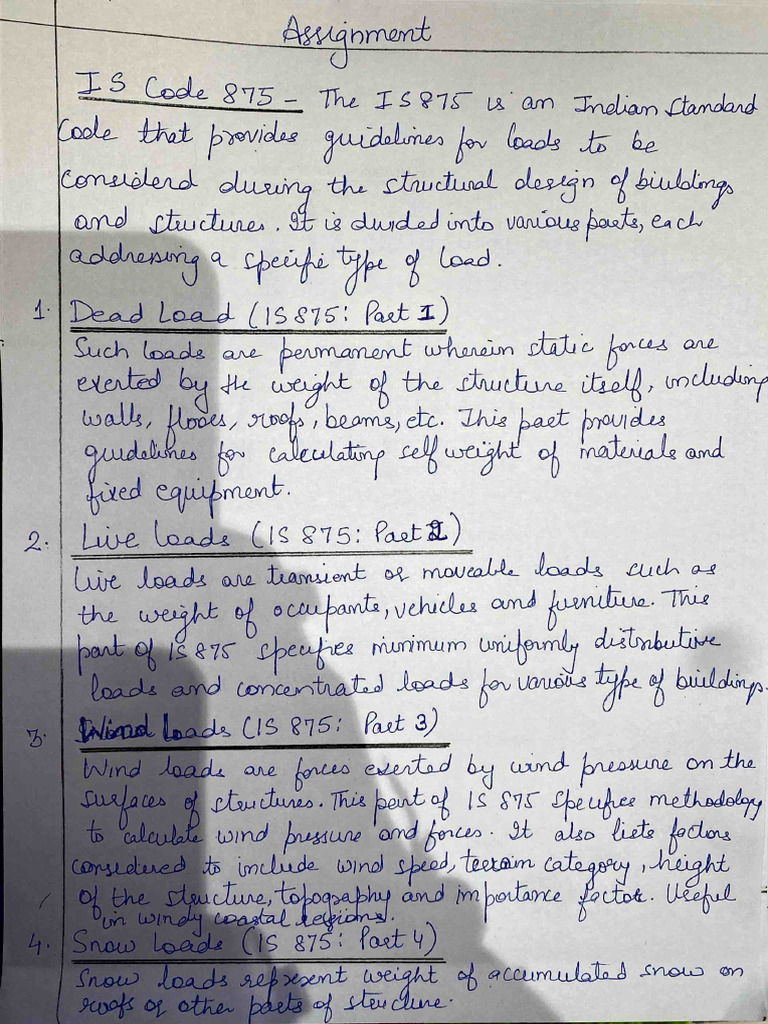 Assignment
IS Code 875 - The IS 875 is an Indian Standard
Code that provides guidelines for loads to be
considerd during the structural design of biuldings
and structures. It is divided into various parts, each
addressing a specific type of load.
1. Dead Load (IS 875: Part I)
Such loads are permanent wherein static forces are
exerted by the weight of the structure itself, including
walls, floors, roofs, beams, etc. This part provides
guidelines for calculating self weight of materials and
fixed equipment.
2. Live loads (IS 875: Part 2)
Live loads are transient or moveable loads such as
the weight of occupants, vehicles and furniture. This
part of IS 875 specifies minimum uniformly distributive
loads and concentrated loads for various type of buildings.
3. Wind loads (IS 875: Part 3)
Wind loads are forces exerted by wind pressure on the
surfaces of structures. This part of IS 875 specifies methodology
to calculate wind pressure and forces. It also lists factors
considered to include wind speed, terrain category, height
of the structure, topography and importance factor. Useful
in windy coastal regions.
4. Snow Loads (IS 875: Part 4)
Snow loads represent weight of accumulated snow on
roofs or other parts of structure.